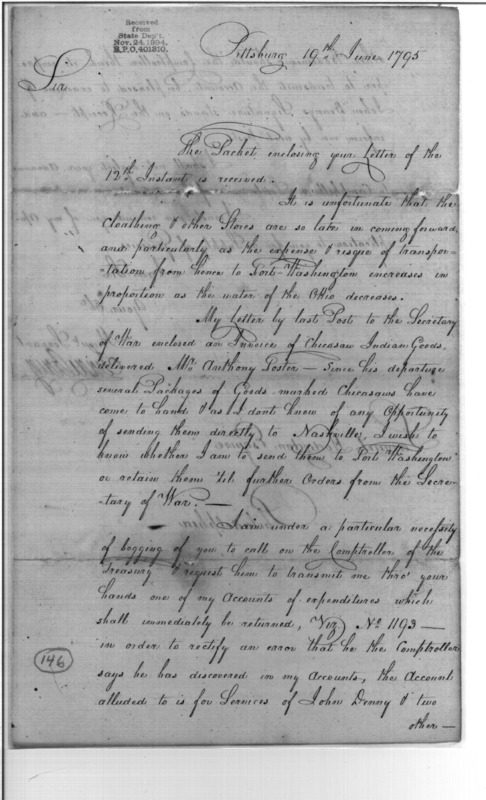 Received
from
State Dep't.
Nov. 24, 1894.
R.P.O, 401310.
Pittsburg 19th June 1795
Sir
The Packet enclosing your Letter of the
12th Instant is received.
It is unfortunate that the
cloathing & other Stores are so late in coming forward,
and particularly as the expense & risque of transpor-
tation from hence to Fort Washington encreases in
proportion as the water of the Ohio decreases.
My Letter by last Post to the Secretary
of War enclosed an Invoice of Chicasaw Indian Goods
delivered Mr. Anthony Foster — Since his departure
several Packages of Goods marked Chicasaws have
come to hand & as I dont know of any Opportunity
of sending them directly to Nashville, I wish to
know whether I am to send them to Fort Washington
or retain them 'til further Orders from the Secre-
tary of War. —
I am under a particular necessity
of begging of you to call on the Comptroller of the
Treasury & request him to transmit me thro' your
hands one of my Accounts of expenditures which
shall immediately be returned, Viz No 1193 —
in order to rectify an error that he the Comptroller
says he has discovered in my Accounts, the Account
alluded to is for Services of John Denny & two
other —
146